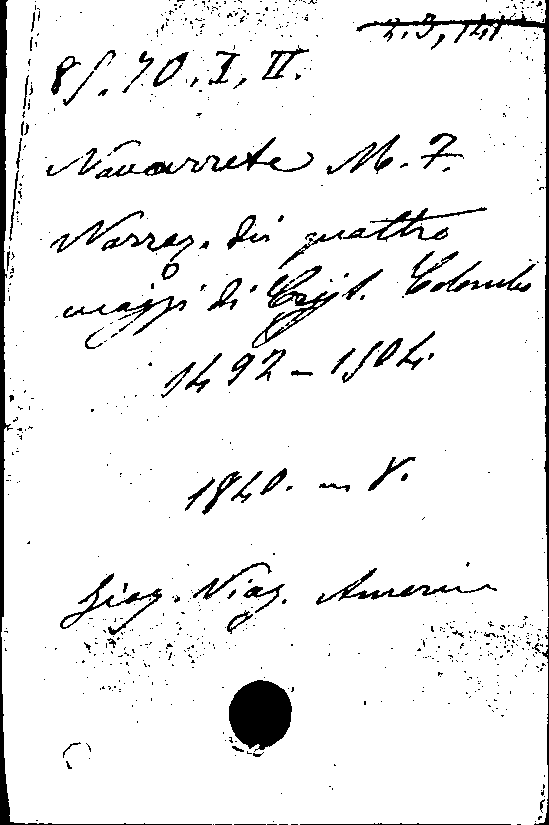 2.3,141
85.70.I, II.
Navarrete M. F.
Narraz. dei quattro
viaggi di Crist. Colombo
1492-1504.
1840. in 8.
Geog. Viag. America